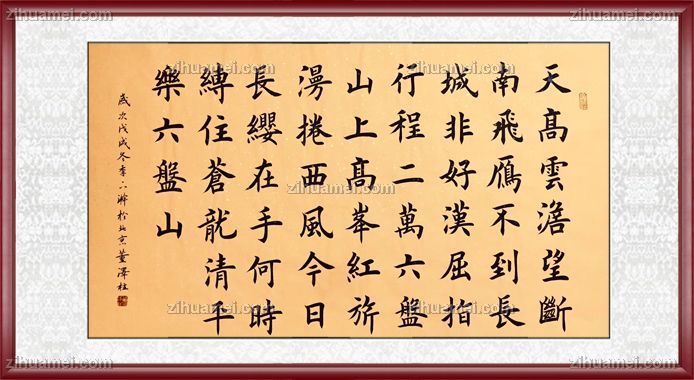 天髙雲澹望斷
南飛鴈不到長
城非好漢屈指
行程二萬六盤
山上髙峯紅旂
漫捲西風今日
長纓在手何時
縛住蒼龍清平
樂六盤山
歲次戊戌冬季於北京董澤柱
zihuamei.com
zihuamei.com
zihuamei.com
zihuamei.com
zihuamei.com
zihuamei.com
zihuamei.com
zihuamei.com
zihuamei.com
zihuamei.com
zihuamei.com